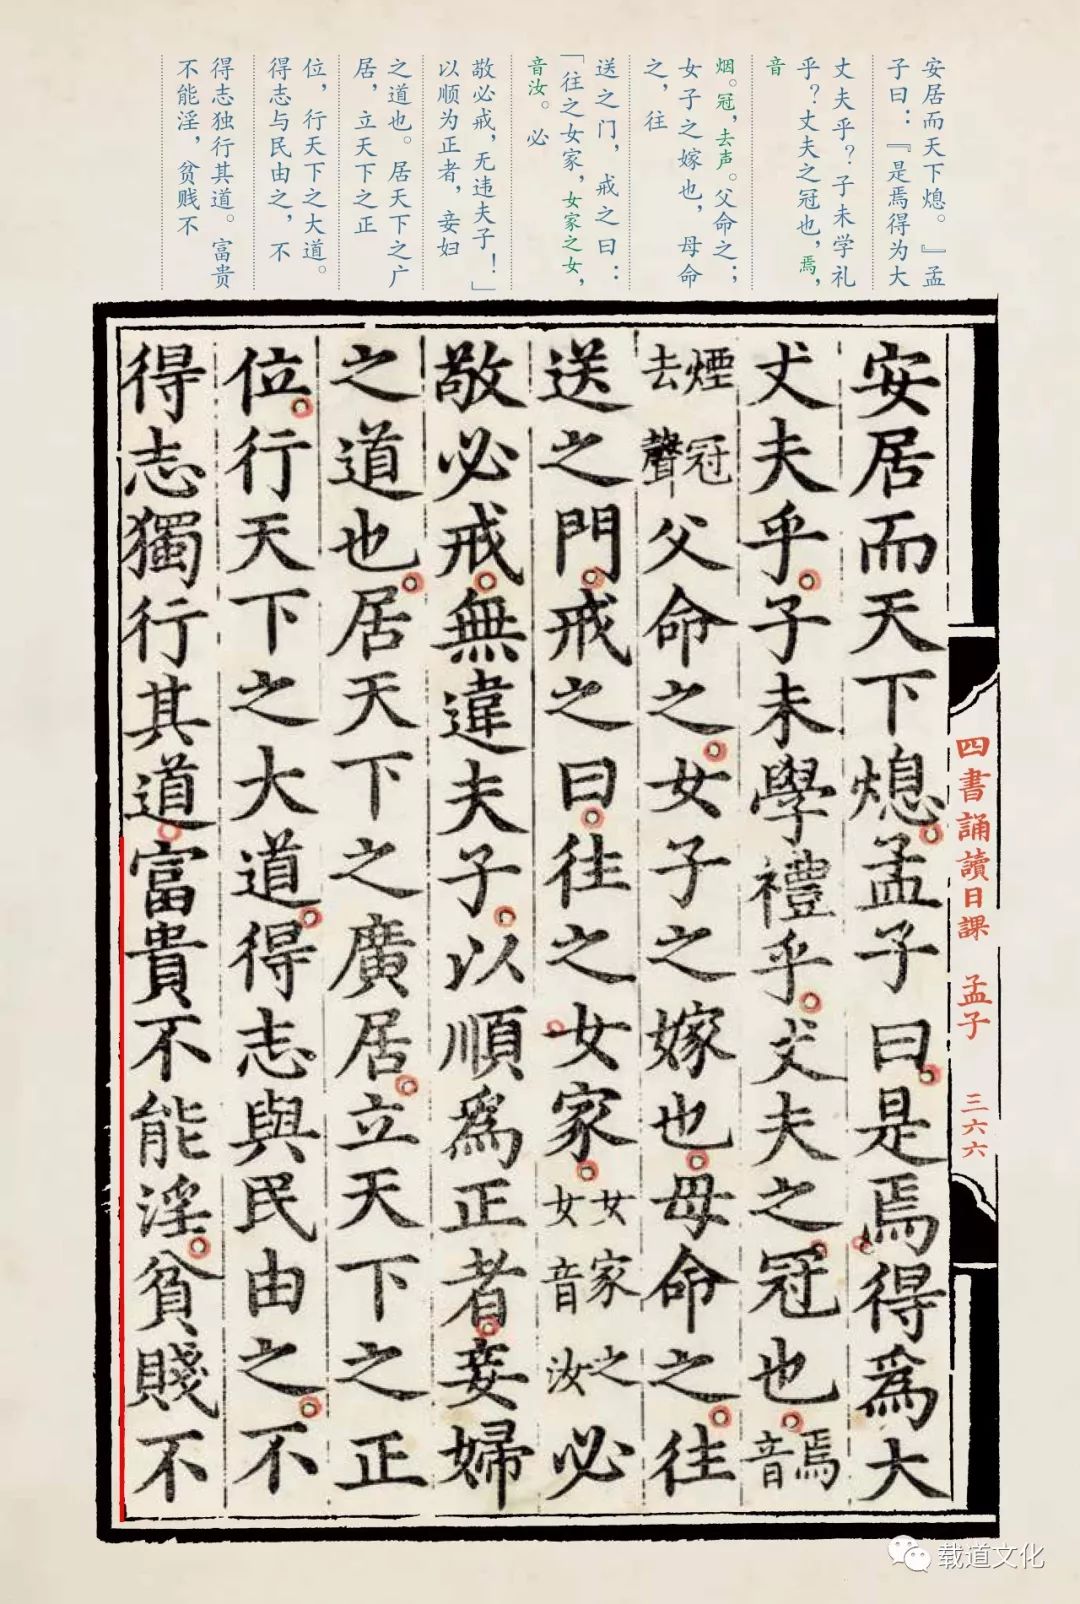 安居而天下熄。』孟
子曰：『是焉得为大
丈夫乎？子未学礼
乎？丈夫之冠也，焉，
音
烟。冠，去声。父命之；
女子之嫁也，母命
之，往
送之门，戒之曰：
「往之女家，女家之女，
音汝。必
敬必戒，无违夫子！」
以顺为正者，妾妇
之道也。居天下之广
居，立天下之正
位，行天下之大道。
得志与民由之，不
得志独行其道。富贵
不能淫，贫贱不
安居而天下熄。孟子曰。是焉得爲大
丈夫乎。子未學禮乎。丈夫之冠也。焉音
煙冠去聲父命之。女子之嫁也。母命之。往
送之門。戒之曰。往之女家。女家之女音汝必
敬必戒。無違夫子。以順爲正者。妾婦
之道也。居天下之廣居。立天下之正
位。行天下之大道。得志與民由之。不
得志獨行其道。富貴不能淫。貧賤不
四書誦讀日課 孟子 三六六
载道文化